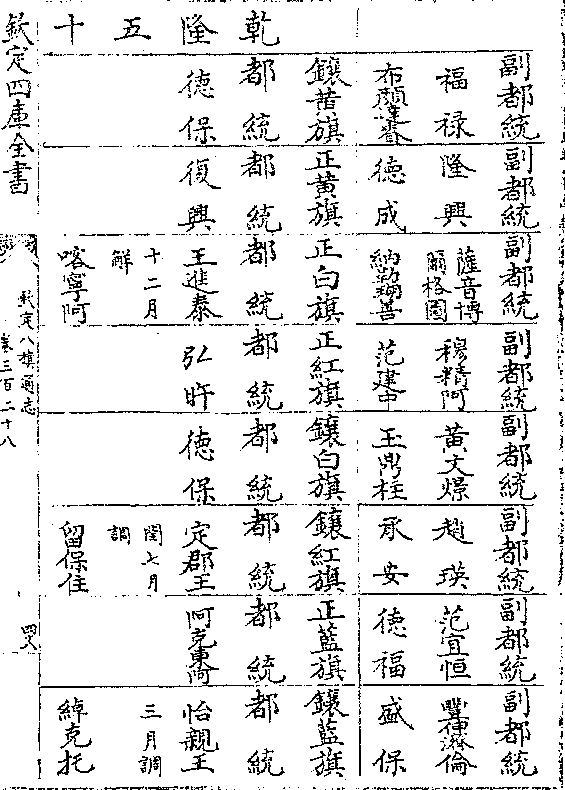 乾隆五十
副都統
福祿
布顏達賚
鑲黃旗
都統
德保
副都統
隆興
德成
正黃旗
都統
復興
副都統
薩音博
爾格圖
納勒瑚善
正白旗
都統
王進泰
十二月
解
喀寧阿
副都統
穆精阿
范建中
正紅旗
都統
弘旿
副都統
黃文
王鼎柱
鑲白旗
都統
德保
副都統
趙瑛
承安
鑲紅旗
都統
定郡王
閏七月
調
留保住
副都統
范宜恒
德福
正藍旗
都統
阿克東阿
副都統
豐紳濟倫
盛保
鑲藍旗
都統
怡親王
三月調
綽克托
欽定四庫全書
欽定八旗通志
卷三百二十八
四八